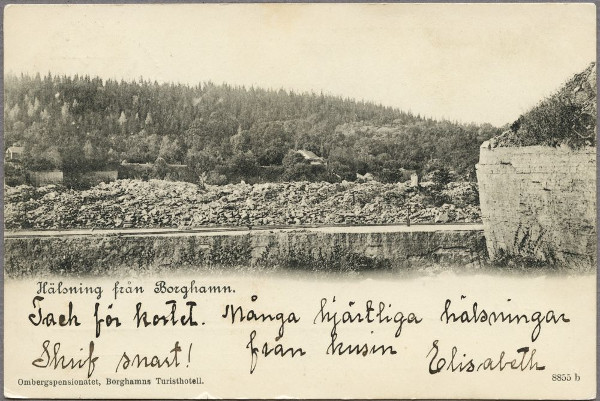 Hälsning från Borghamn.
Tach för kortet. Många hjärtliga hälsningar
Skrif snart! från kusin Elisabeth
Ombergspensionatet, Borghamns Turisthotell.
8855 b